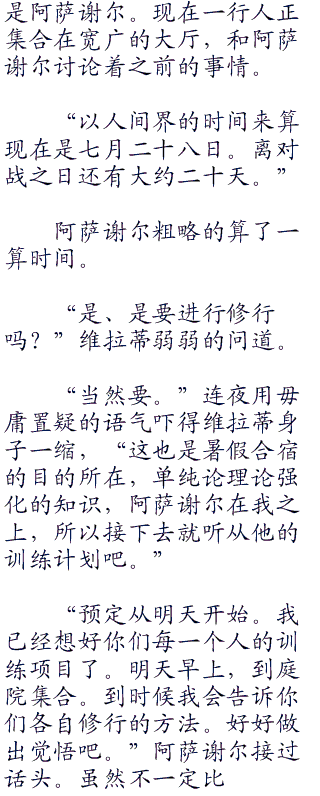 是阿萨谢尔。现在一行人正
集合在宽广的大厅，和阿萨
谢尔讨论着之前的事情。
“以人间界的时间来算
现在是七月二十八日。离对
战之日还有大约二十天。”
阿萨谢尔粗略的算了一
算时间。
“是、是要进行修行
吗？”维拉蒂弱弱的问道。
“当然要。”连夜用毋
庸置疑的语气吓得维拉蒂身
子一缩，“这也是暑假合宿
的目的所在，单纯论理论强
化的知识，阿萨谢尔在我之
上，所以接下去就听从他的
训练计划吧。”
“预定从明天开始。我
已经想好你们每一个人的训
练项目了。明天早上，到庭
院集合。到时候我会告诉你
们各自修行的方法。好好做
出觉悟吧。”阿萨谢尔接过
话头。虽然不一定比